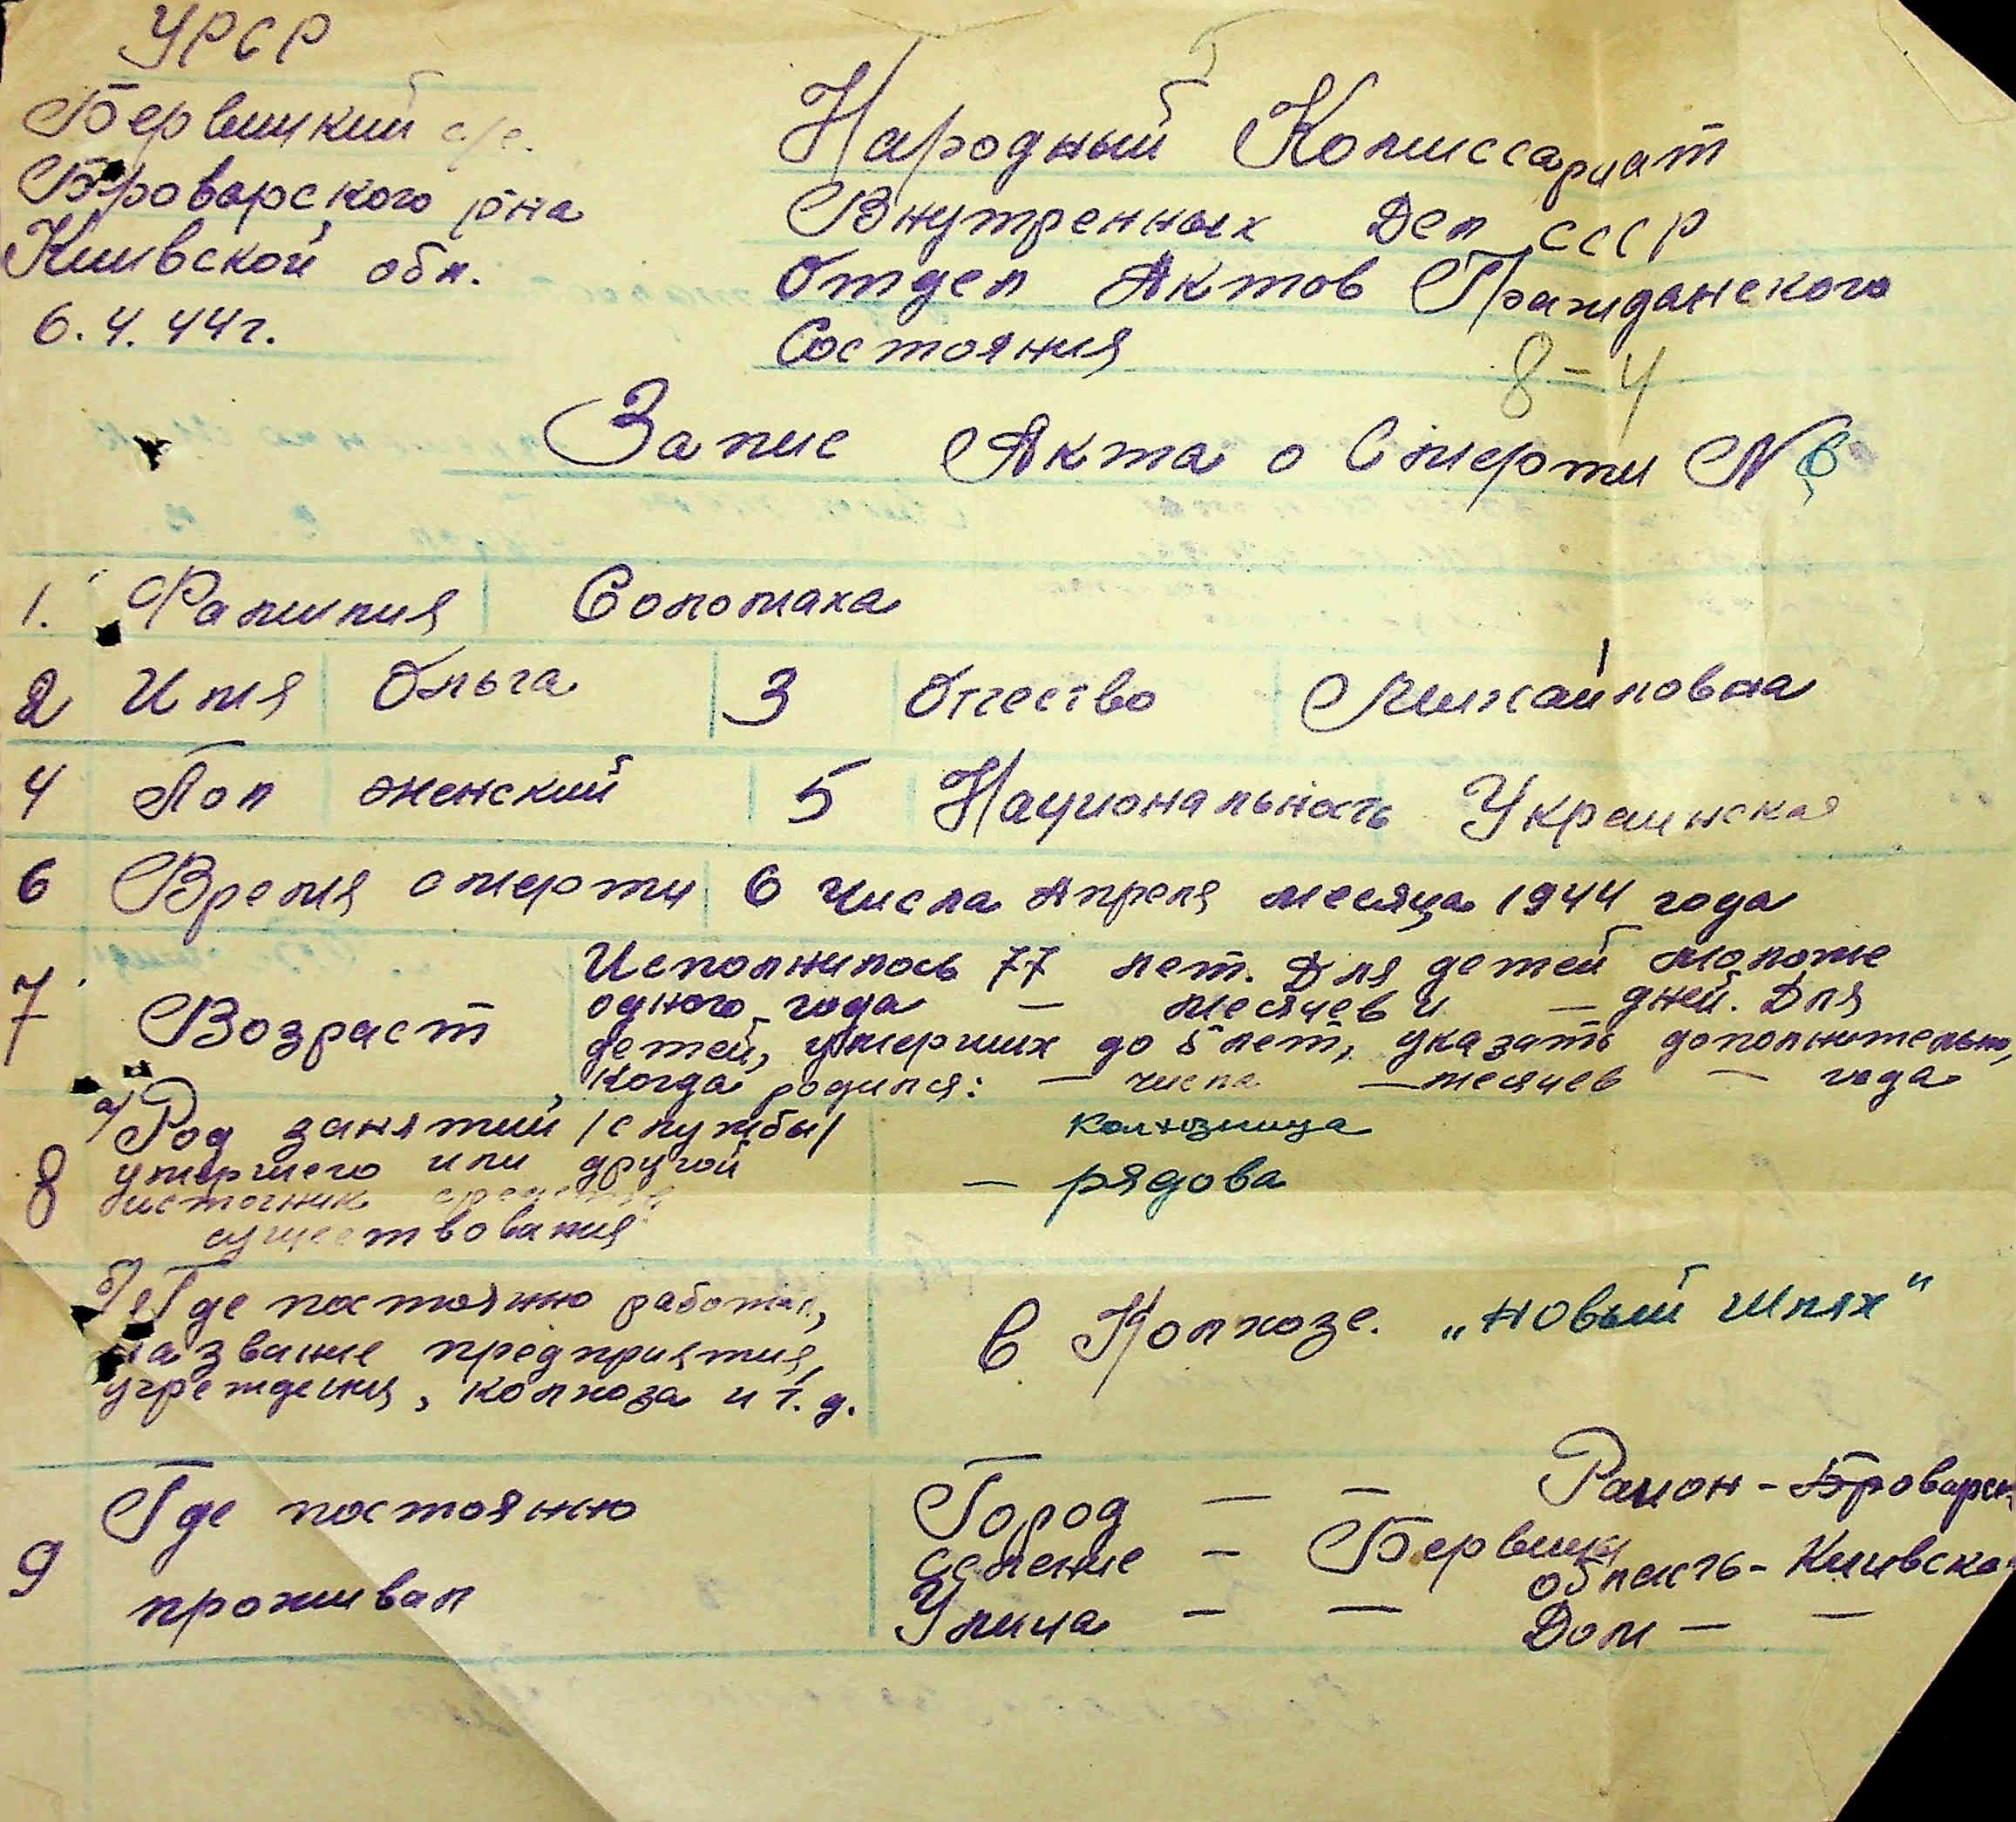 УРСР
Бервицкий с/с.
Броварского р-на
Киивской обл.
6.4.44г.
Народный Комиссариат
Внутренных Дел СССР
Отдел Актов Гражданского
Состояния
8-4
Запис Акта о Смерти N 6
1. Фамилия Соломаха
2 Имя Ольга 3 Отчество Михайловна
4 Пол женский 5 Национальность Украинска
6 Время смерти 6 числа Апреля месяца 1944 года
7 Возраст Исполнилось 77 лет. Для детей моложе
одного года — месяцев и — дней. Для
детей, умерших до 5 лет, указать дополнительно,
когда родился: — числа — месяцев — года
8 а/ Род занятий /службы/ колхозница
умершего или другой — рядова
источник средств
существования
б/ Где постоянно работал,
название предприятия,
учреждения, колхоза и т.д.
в Колхозе. „Новый шлях"
9 Где постоянно
проживал
Город — — Район - Броварск
селение — Бервица область - Киивска
Улица — — Дом — —